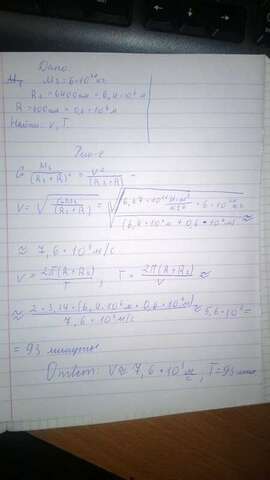 Дано:
M₃ = 6*10²⁴кг
R₃ = 6400км = 6,4*10⁶м
R = 600км = 0,6*10⁶м
Найти: v, T.
Реш-е
G M₃/(R₃+R)² = v²/(R₃+R) -
V = √(GM₃/(R₃+R)) = √(6,67*10⁻¹¹ Н*м²/кг² * 6*10²⁴кг/(6,4*10⁶м+0,6*10⁶м)) ≈
≈ 7,6*10³м/с
V = 2π(R+R₃)/T , T = 2π(R+R₃)/V ≈
≈ 2*3,14*(6,4*10⁶м+0,6*10⁶м)/7,6*10³м/с ≈ 5,6*10³ =
= 93 минуты
Ответ: V≈7,6*10³ м/с, T=93 мин